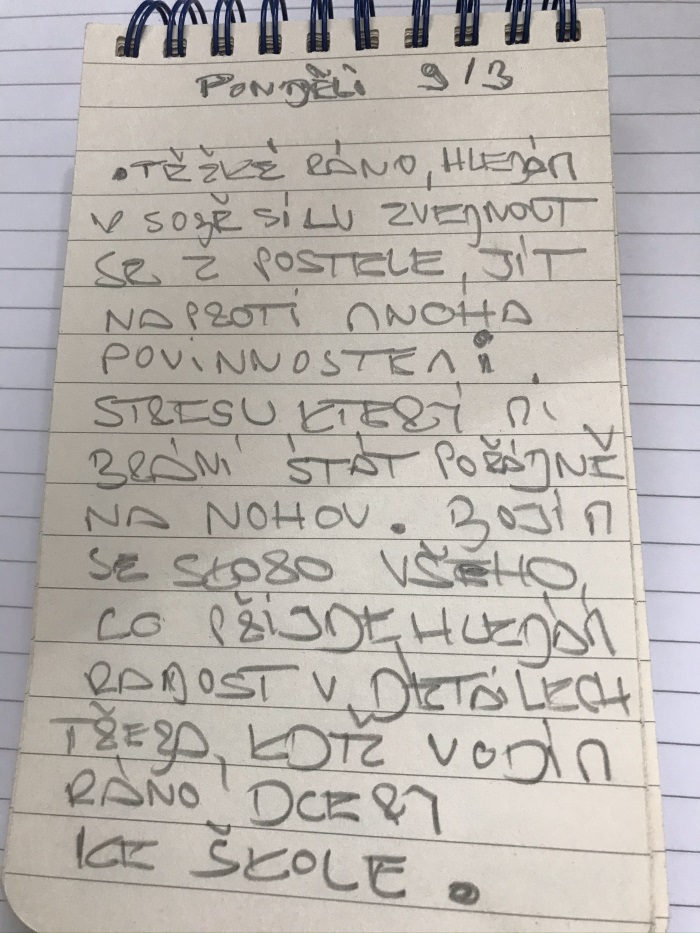 PONDĚLÍ 9/3
.TĚŽKÉ RÁNO, HLEDÁM
V SOBĚ SÍLU ZVEDNOUT
SE Z POSTELE, JÍT
NAPROTI MNOHA
POVINNOSTEM i
STRESU KTERÝ MI
BRÁNÍ STÁT POŘÁDNĚ
NA NOHOU. BOJÍM
SE SKORO VŠEHO,
CO PŘIJDE, HLEDÁM
RADOST V DETAILECH
TŘEBA, KDYŽ VODÍM
RÁNO DCERY
KE ŠKOLE.